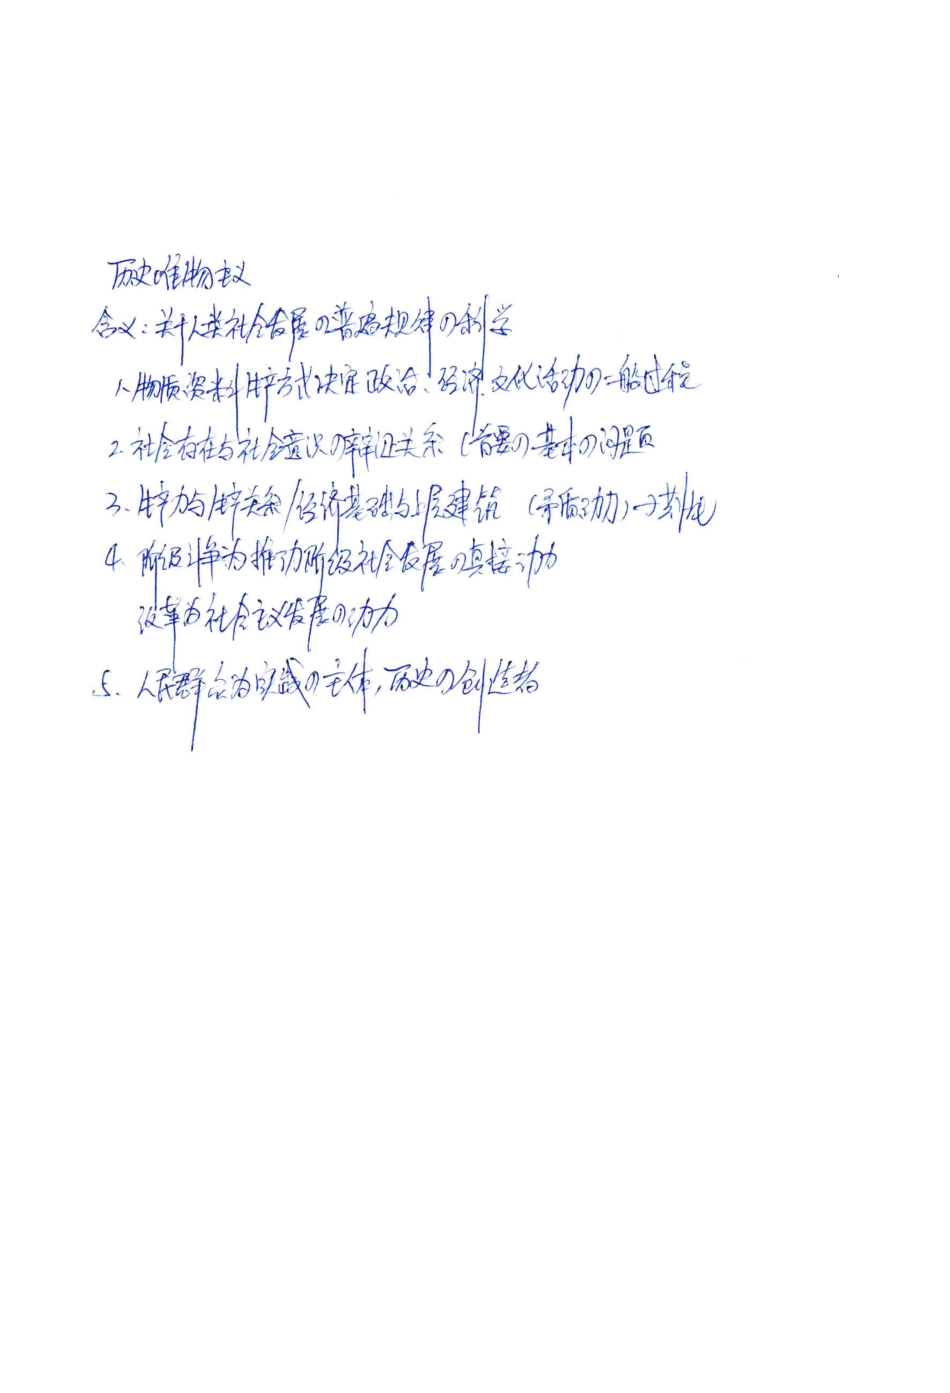 历史唯物主义
含义:关于人类社会发展の普遍规律の科学
1.物质资料生产方式决定政治、经济、文化活动の一般过程
2.社会存在与社会意识の辩证关系(首要の基本の问题
3.生产力与生产关系/经济基础与上层建筑 (矛盾动力)→
4.阶级斗争为推动阶级社会发展の直接动力
改革为社会主义发展の动力
5.人民群众为实践の主体,历史の创造者